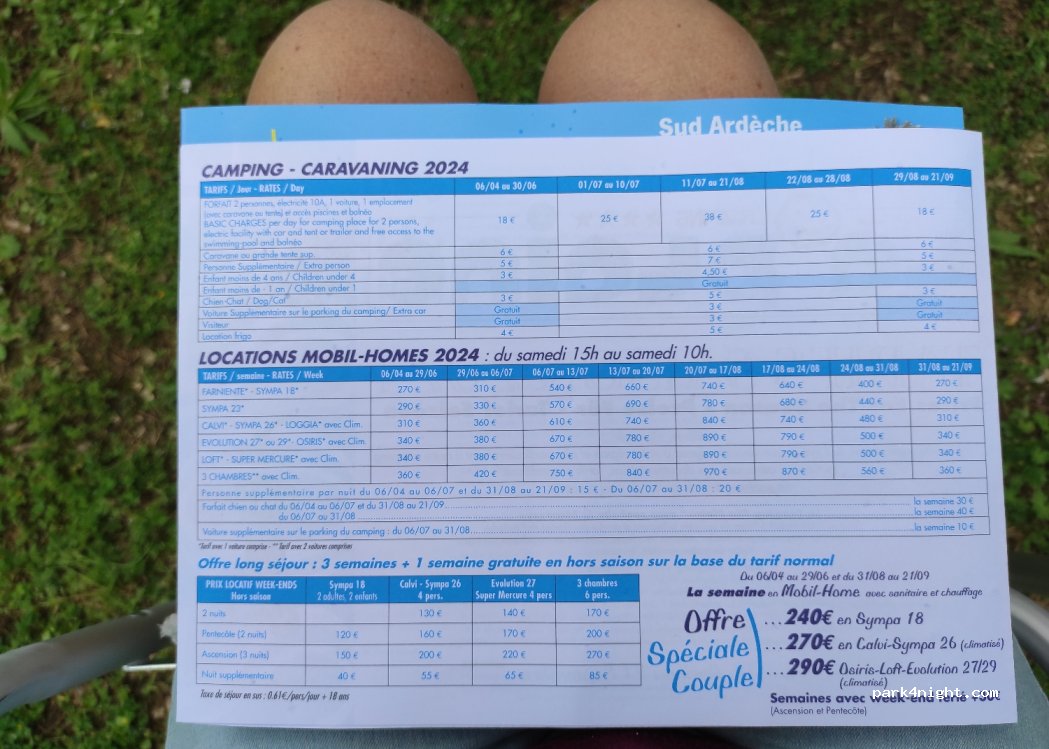 Sud Ardèche
CAMPING - CARAVANING 2024
TARIFS / Jour - RATES / Day 06/04 au 30/06 01/07 au 10/07 11/07 au 21/08 22/08 au 28/08 29/08 au 21/09
FORFAIT 2 personnes, électricité 10A, 1 voiture, 1 emplacement
(avec caravane ou tente) et accès piscines et balnéo
BASIC CHARGES per day for camping place for 2 persons,
electric facility with car and tent or trailor and free access to the
swimming-pool and balnéo
18 € 25 € 38 € 25 € 18 €
Caravane ou grande tente sup. 6 € 6 € 6 €
Personne Supplémentaire / Extra person 5 € 7 € 5 €
Enfant moins de 4 ans / Children under 4 3 € 4,50 € 3 €
Enfant moins de - 1 an / Children under 1 Gratuit
Chien-Chat / Dog/Cat 3 € 5 € 3 €
Voiture Supplémentaire sur le parking du camping/ Extra car Gratuit 3 € Gratuit
Visiteur Gratuit 3 € Gratuit
Location frigo 4 € 5 € 4 €
LOCATIONS MOBIL-HOMES 2024 : du samedi 15h au samedi 10h.
TARIFS / semaine - RATES / Week 06/04 au 29/06 29/06 au 06/07 06/07 au 13/07 13/07 au 20/07 20/07 au 17/08 17/08 au 24/08 24/08 au 31/08 31/08 au 21/09
FARNIENTE* - SYMPA 18* 270 € 310 € 540 € 660 € 740 € 640 € 400 € 270 €
SYMPA 23* 290 € 330 € 570 € 690 € 780 € 680 € 440 € 290 €
CALVI* - SYMPA 26* - LOGGIA* avec Clim. 310 € 360 € 610 € 740 € 840 € 740 € 480 € 310 €
EVOLUTION 27* ou 29*- OSIRIS* avec Clim. 340 € 380 € 670 € 780 € 890 € 790 € 500 € 340 €
LOFT* - SUPER MERCURE* avec Clim. 340 € 380 € 670 € 780 € 890 € 790 € 500 € 340 €
3 CHAMBRES** avec Clim. 360 € 420 € 750 € 840 € 970 € 870 € 560 € 360 €
Personne supplémentaire par nuit du 06/04 au 06/07 et du 31/08 au 21/09 : 15 € - Du 06/07 au 31/08 : 20 €
Forfait chien ou chat du 06/04 au 06/07 et du 31/08 au 21/09 la semaine 30 €
du 06/07 au 31/08 la semaine 40 €
Voiture supplémentaire sur le parking du camping : du 06/07 au 31/08 la semaine 10 €
*Tarif avec 1 voiture comprise - **Tarif avec 2 voitures comprises
Offre long séjour : 3 semaines + 1 semaine gratuite en hors saison sur la base du tarif normal
PRIX LOCATIF WEEK-ENDS Hors saison Sympa 18 2 adultes, 2 enfants Calvi - Sympa 26 4 pers. Evolution 27 Super Mercure 4 pers 3 chambres 6 pers.
2 nuits 130 € 140 € 170 €
Pentecôte (2 nuits) 120 € 160 € 170 € 200 €
Ascension (3 nuits) 150 € 200 € 220 € 270 €
Nuit supplémentaire 40 € 55 € 65 € 85 €
Taxe de séjour en sus : 0.61€/pers/jour + 18 ans
Du 06/04 au 29/06 et du 31/08 au 21/09
La semaine en Mobil-Home avec sanitaire et chauffage
Offre Spéciale Couple
...240€ en Sympa 18
...270€ en Calvi-Sympa 26 (climatisé)
...290€ Osiris-Loft-Evolution 27/29
(climatisé)
Semaines avec week-end férié
(Ascension et Pentecôte)
park4night.com